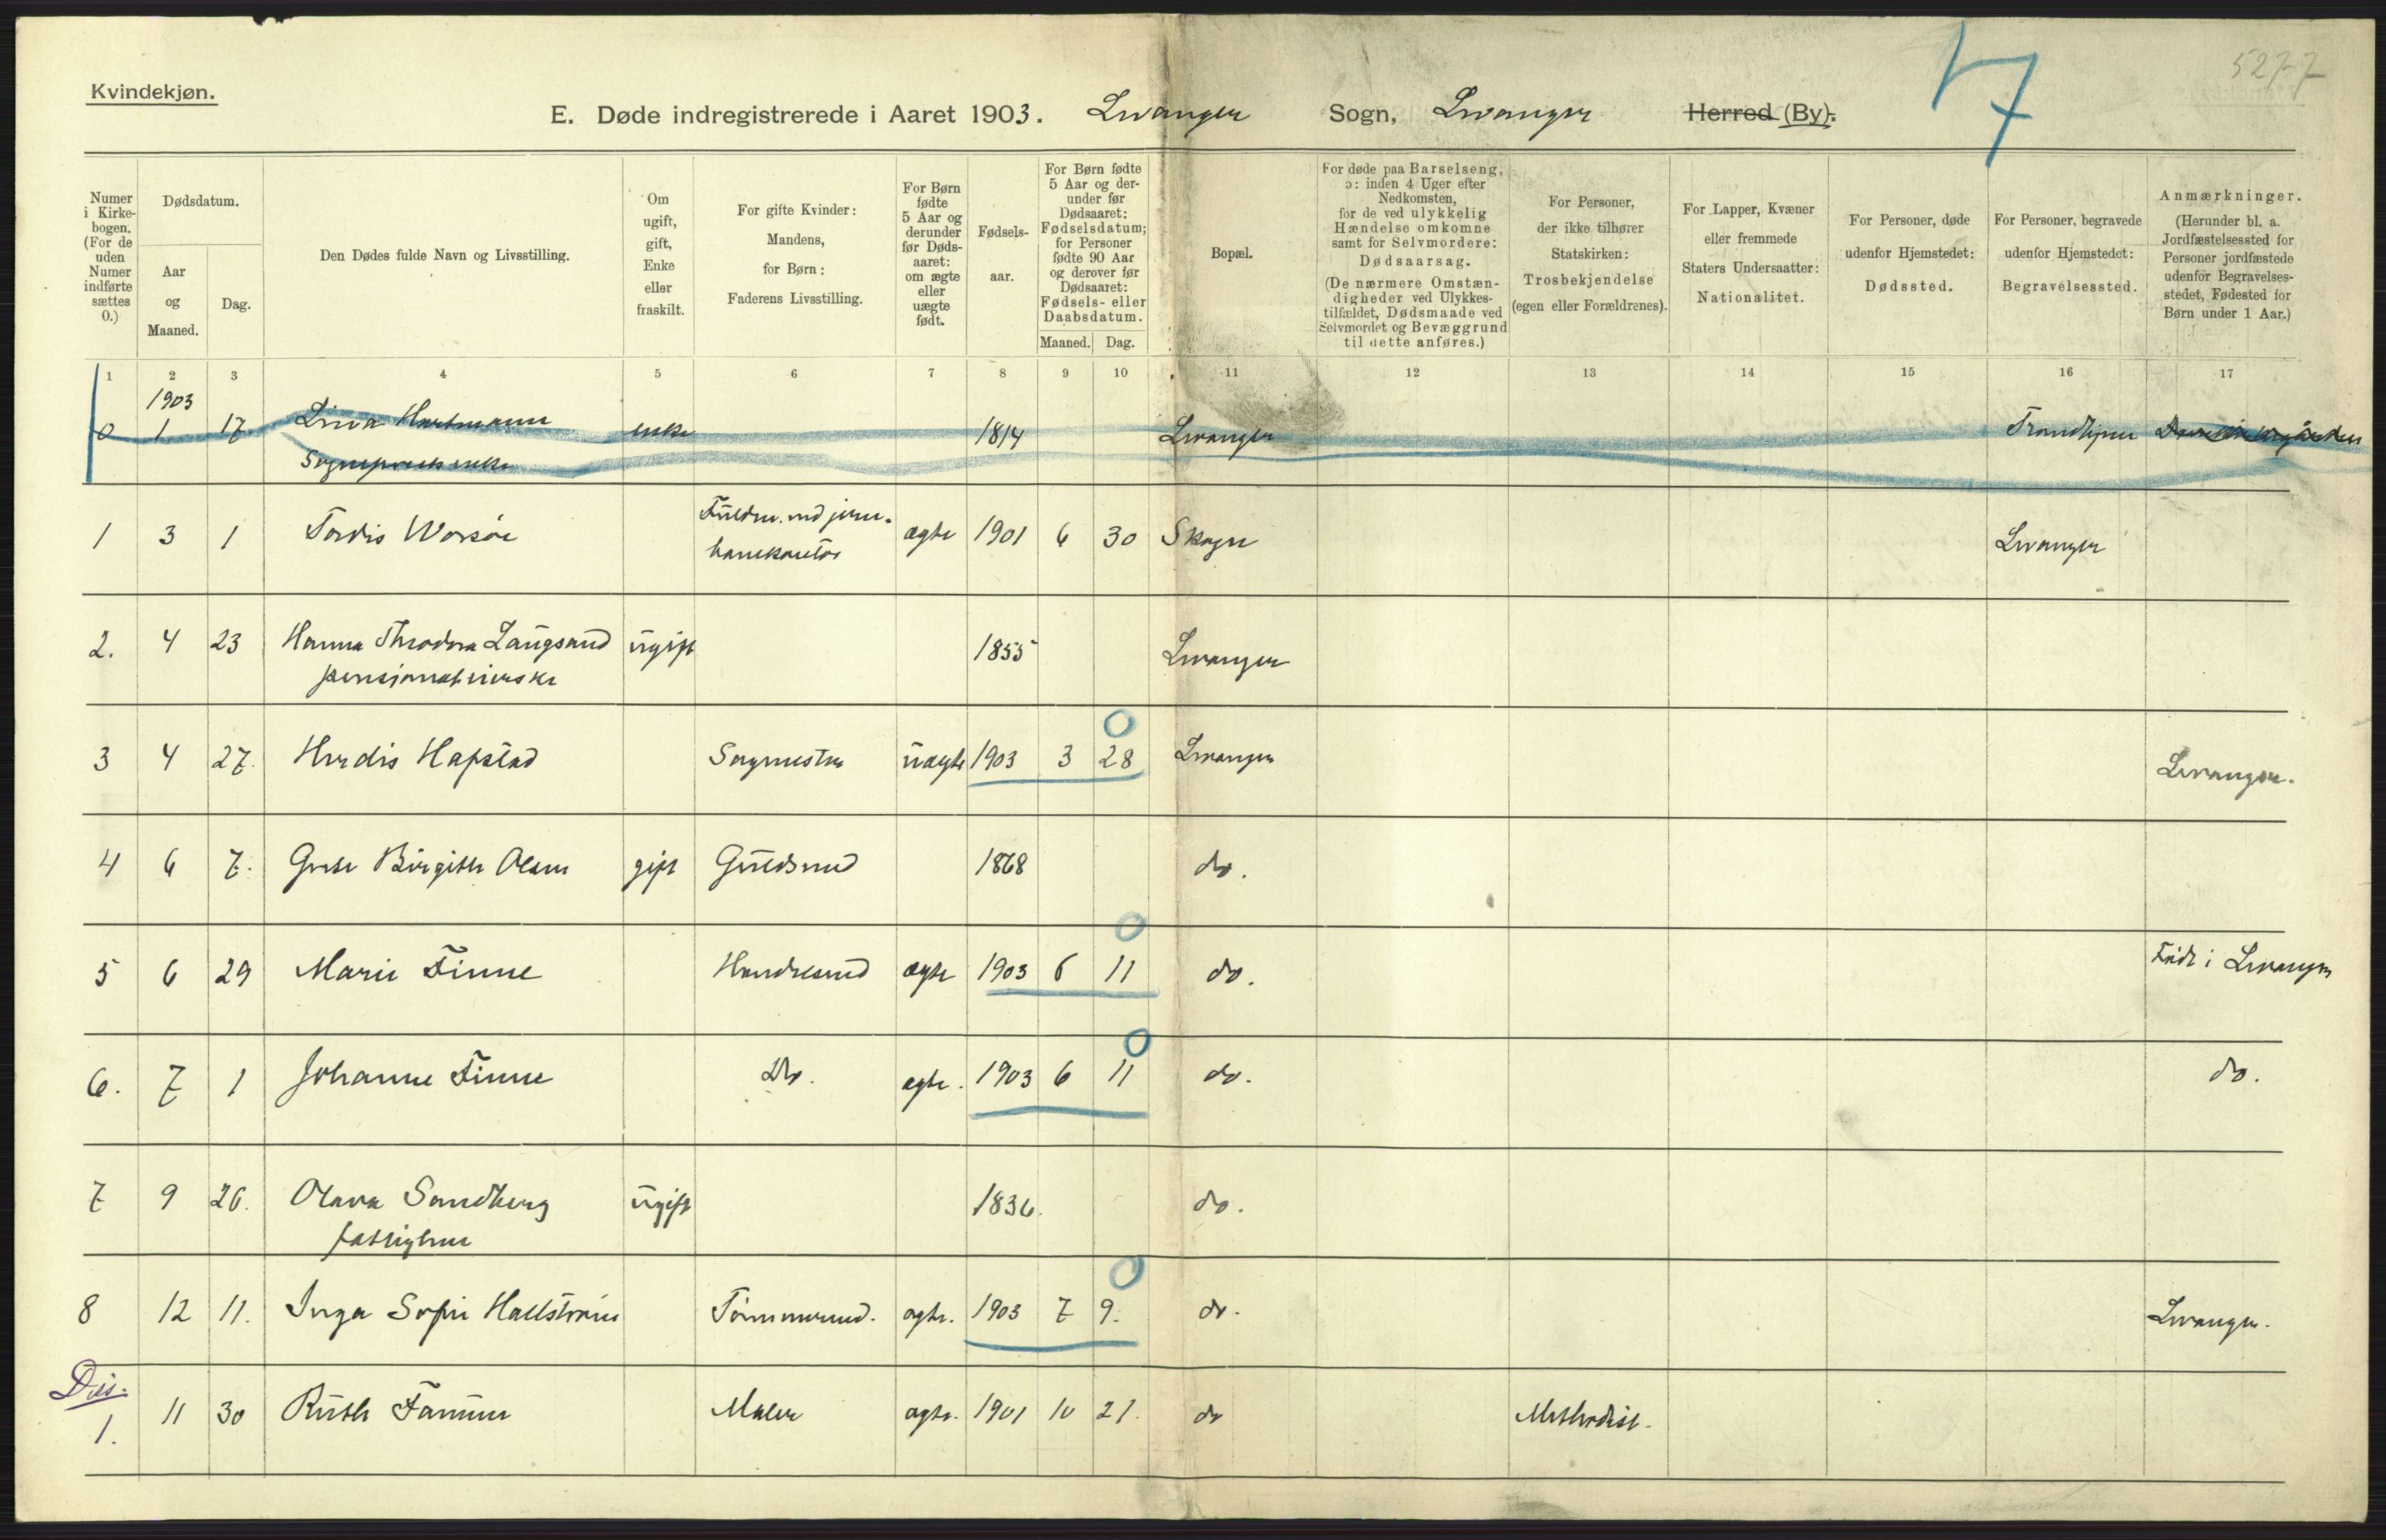 5277
7
Kvindekjøn.
E. Døde indregistrerede i Aaret 1903. Levanger Sogn, Levanger Herred (By).
Numer i Kirkebogen. (For de uden Numer indførte sættes 0.)
Dødsdatum.
Aar og Maaned.
Dag.
Den Dødes fulde Navn og Livsstilling.
Om ugift, gift, Enke eller fraskilt.
For gifte Kvinder: Mandens, for Børn: Faderens Livsstilling.
For Børn fødte 5 Aar og derunder før Dødsaaret: om ægte eller uægte født.
Fødselsaar.
For Børn fødte 5 Aar og derunder før Dødsaaret: Fødselsdatum; for Personer fødte 90 Aar og derover før Dødsaaret: Fødsels- eller Daabsdatum.
Maaned. Dag.
Bopæl.
For døde paa Barselseng, ɔ: inden 4 Uger efter Nedkomsten, for de ved ulykkelig Hændelse omkomne samt for Selvmordere: Dødsaarsag.
(De nærmere Omstændigheder ved Ulykkestilfældet, Dødsmaade ved Selvmordet og Bevæggrund til dette anføres.)
For Personer, der ikke tilhører Statskirken: Trosbekjendelse (egen eller Forældrenes).
For Lapper, Kvæner eller fremmede Staters Undersaatter: Nationalitet.
For Personer, døde udenfor Hjemstedet: Dødssted.
For Personer, begravede udenfor Hjemstedet: Begravelsessted.
Anmærkninger. (Herunder bl. a. Jordfæstelsessted for Personer jordfæstede udenfor Begravelsesstedet, Fødested for Børn under 1 Aar.)
1 2 3 4 5 6 7 8 9 10 11 12 13 14 15 16 17
1903
0 1 17 Hartmann enke 1814 Levanger Trondhjem
Sognepræsts enke
1 3 1 Tordis Worsøe Fuldm. ved jern- ægte 1901 6 30 Skogn Levanger
banekontor
2. 4 23 Hanna Theodora Langsand ugift 1855 Levanger
pensjonatværske
3 4 27. Herdis Hafstad Sagmester uægte 1903 3 28 Levanger Levanger.
4 6 7. Grete Birgitte Olsen gift Guldsmed 1868 do.
5 6 29 Marie Finne Handelsmd ægte 1903 6 11 do. Född i Levanger
6. 7 1 Johanne Finne Do. ægte. 1903 6 11 do. do.
7 9 26. Olava Sandberg ugift 1836. do.
fattiglem
8 12 11. Inga Sofie Hallstrøm Tømmermd. ægte. 1903 7 9. do. Levanger.
Dis.
1. 11 30 Ruth Maler ægte. 1901 10 21. do Methodist.